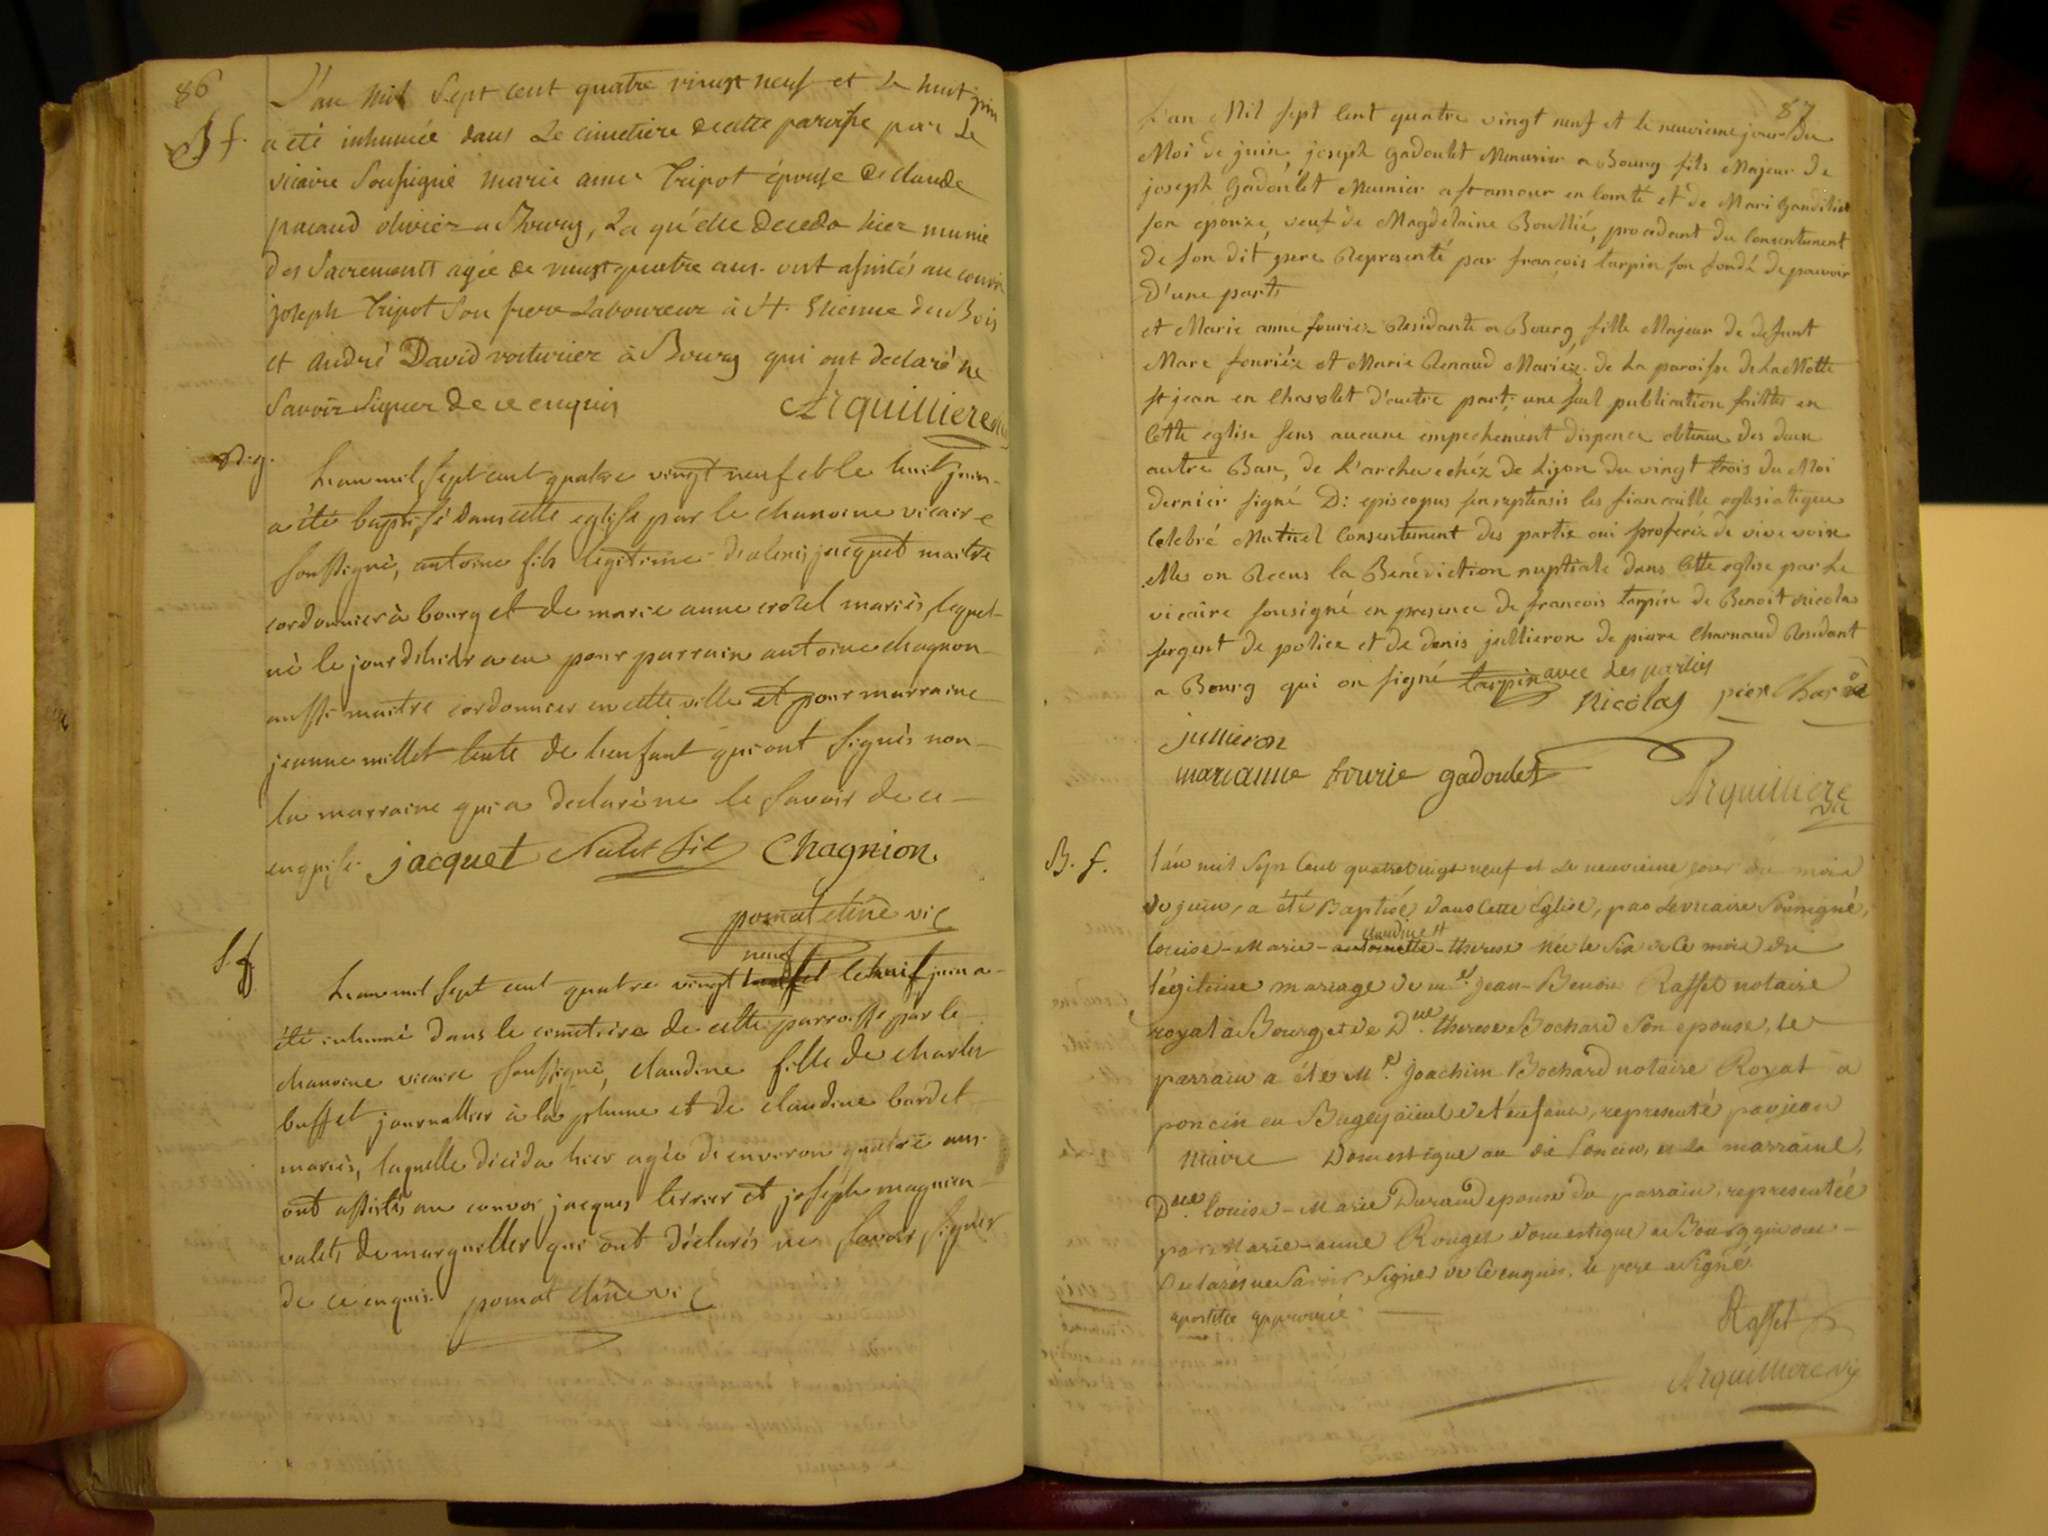 86
S f.
L'an mil sept cent quatre vingt neuf et le huit juin
a été inhumée dans le cimetiere de cette paroisse par le
vicaire soussigné marie anne Tripot épouse de claude
pacaud olivier a Bourg, la qu'elle deceda hier munie
des Sacrements agée de vingt quatre ans. ont assistés au convoi
joseph Tripot son frere Laboureur à St. Etienne du Bois
et andré David voiturier à Bourg qui ont declaré ne
savoir signer de ce enquis Arquilliere
B. g.
L'an mil sept cent quatre vingt neuf et le huit juin
a été baptisé dans cette eglise par le chanoine vicaire
soussigné, antoine fils legitime de alexis jacquet maitre
cordonnier à bourg et de marie anne crozel mariés, lequel
né le jour d'hier a eu pour parrain antoine chagnon
aussi maitre cordonnier en cette ville et pour marraine
jeanne millet tente de l'enfant qui ont signés non
la marraine qui a declaré ne le savoir de ce
enquise. jacquet fils Chagnion.
pomat chne vic
S. f.
neuf
L'an mil sept cent quatre vingt et le huit juin a
été inhumé dans le cimetiere de cette parroisse par le
chanoine vicaire soussigné, claudine fille de charles
buffet journallier à la plume et de claudine bardet
mariés, laquelle décéda hier agée de environ quatre ans.
ont assistés au convoi jacques terrier et joseph magnien
valets de marguillier qui ont déclarés ne savoir signer
de ce enquis. pomat chne vic
87
L'an Mil sept cent quatre vingt neuf et le neuvieme jour du
Moi de juin, joseph gadoulet Menusier a Bourg fils Majeur de
joseph gadoulet Munier a st amour en comté et de Mari
son eponze, veuf de Magdelaine Boullié, procedant du consentement
de son dit pere Representé par françois tarpin son fondé de pouvoir
d'une part
et Marie anne fourier Residante a Bourg fille Majeur de defunt
Marc fouriér et Marie Renaud Mariéz de la paroisse de La Motte
st jean en Charolet d'autre part; une seul publication faittes en
Cette eglise sens aucune empechement dispence obtenue des deux
autre Ban, de l'archevechéz de Lyon du vingt trois du Moi
dernier signé D: episcopus sareptensis les fiancaille eglesiatique
Celebré Mutuel Consentement des partie oui proferéz de vive voix
Mes on Receus la Benédiction nuptiale dans Cette eglise par Le
vicaire sousigné en presence de francois tarpin de Benoit nicolas
sergent de police et de denis jullieron de pierre Charnaud Residant
a Bourg qui on signé tarpin avec les parties
Nicolas
jullieron
marianne fourie gadoulet
Arquilliere
vic
B. f.
L'an mil sept cent quatrevingt neuf et le neuvieme jour du mois
de juin, a été Baptisé dans cette Eglise, par le vicaire soussigné,
claudine
louise - Marie - antoinette - therese née le six de ce mois du
légitime mariage de mr. jean - Benoit Raffet notaire
royal à Bourg et de Dme. therese Bochard son epouse, le
parrain a été Mr. joachim Bochard notaire Royal à
poncin en Bugey aieul de l'enfant, representé par jean
maire Domestique au dit Poncin, et la marraine,
Dme. louise - Marie Durand epouse du parrain, representée
par Marie - anne Rouget domestique a Bourg qui ont
declarés ne savoir signer de ce enquis, le pere a signé.
apostille approuvée.
Raffet
Arquilliere vic